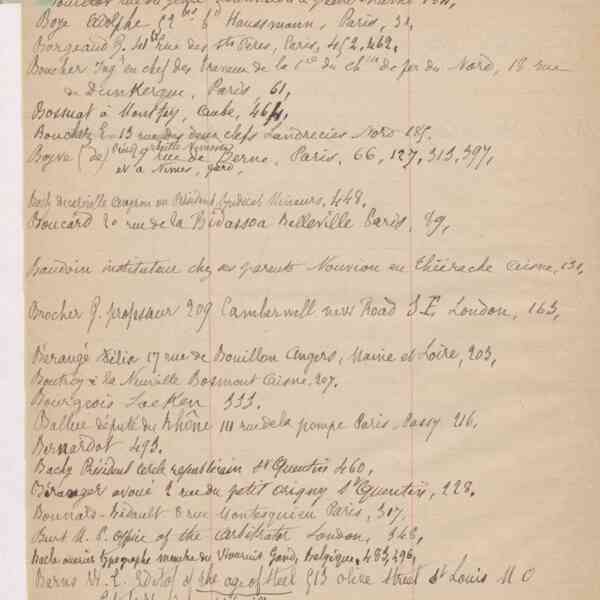 Boye Adolphe 52 bis bd Haussmann, Paris, 31,
Borgeaud G. 41 rue des Sts Pères, Paris, 452, 462,
Boucher Ingr en chef des travaux de la Cie du ch. de fer du Nord, 18 rue
de Dunkerque, Paris, 61,
Bosmat à Montfey, Aube, 464,
Bouchez E. 13 rue des deux clefs Landrecies Nord 185.
Boyve (de) rue de Berne, Paris, 66, 127, 313, 397,
et à Nimes, Gard,
Président Syndicat Mineurs, 448.
Boucard 20 rue de la Bidassoa Belleville Paris, 89,
Baudoin instituteur chez ses parents Nouvion en Thiérache Aisne, 131,
Brocher G. professeur 209 Camberwell new Road S.E. London, 163,
Bérangé 17 rue de Bouillon Angers, Maine et Loire, 203,
Boutroy à la Neuville Bosmont Aisne, 207.
Bourgeois Laeken 333.
Ballue député du Rhône 111 rue de la pompe Paris-Passy 216,
Bernardot 493.
Bachy Président cercle républicain St Quentin 460,
Béranger avoué 2 rue du petit origny St Quentin, 228.
Bonnats-Hérault 8 rue Montesquieu Paris, 317,
Burt A. P. Office of the Arbitrator London, 348,
ouvrier typographe membre du Vooruit Gand, Belgique, 483, 496,
Barns W. E. Editor of the age of Steel 913 olive Street St Louis M O